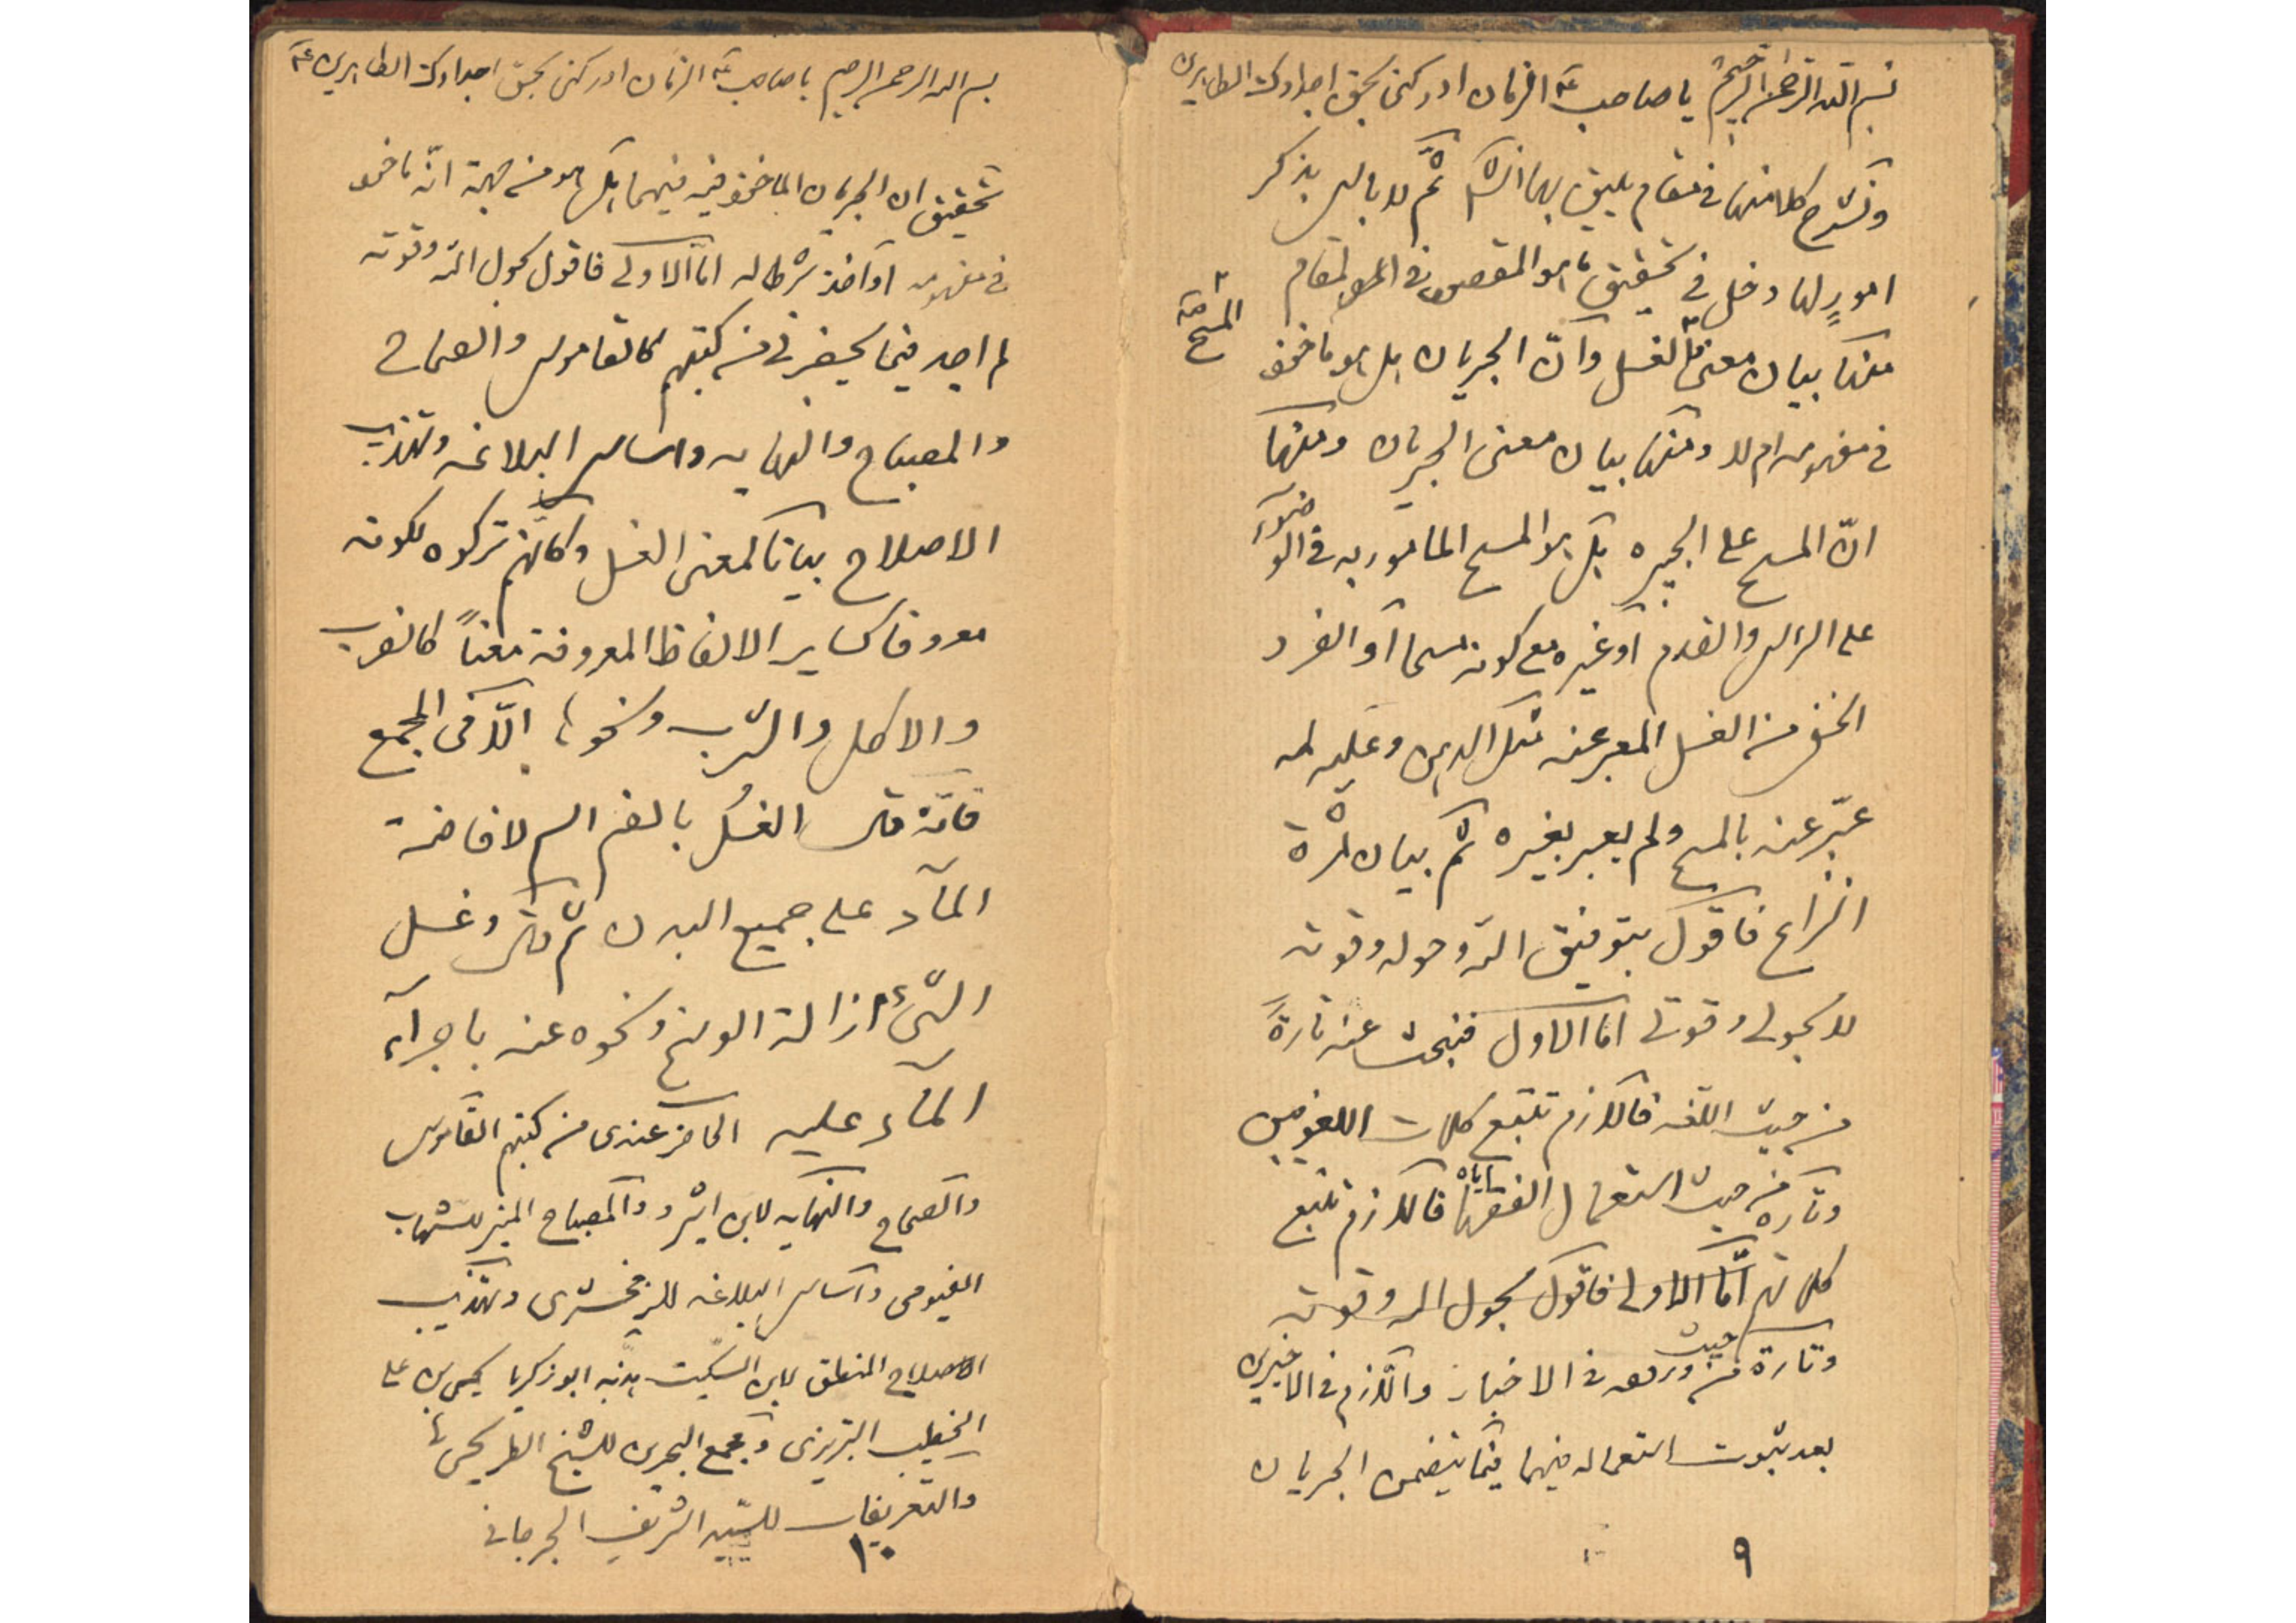 بسم الله الرحمن الرحيم يا صاحب الزمان ادركنى بحق اجدادك الطاهرين
ونشرح كلا منها فى مقام يليق بها انش ثم لا باس بذكر
امورٍ لها دخل فى تحقيق ما هو المقصود فى المقام
منها بيان معنى الغسل وانّ الجريان هل هو ماخوذ
فى مفهومه ام لا ومنها بيان معنى الجريان ومنها
انّ المسح على الجبيره هل هو المسح المامور به فى الوضوء
على الراس والقدم او غيره مع كونه مسحا او الفرد
الخفى من الغسل المعبر عنه بمثل الدهن وعليه لم
عبّر عنه بالمسح ولم يعبر بغيره ثم بيان ثمرة
النزاع فاقول بتوفيق الله وحوله وقوته
لا بحولى وقوتى اما الاول فنبحث عنه تارةً
من حيث اللغه فاللازم تتبع كلمات اللغويين
وتاره من حيث استعمال الفقهاء اياه فاللازم تتبع
كلماتهم امّا الاولى فاقول بحول الله وقوته
وتارة من حيث وروده فى الاخبار واللازم فى الاخيرين
بعد ثبوت استعماله فيهما فيما يتضمن الجريان
٩
بسم الله الرحمن الرحيم يا صاحب الزمان ادركنى بحق اجدادك الطاهرين
تحقيق ان الجريان الماخوذ فيه فيهما هل هو من جهة انّه ماخوذ
فى مفهومه او اخذ شرطا له امّا الاولى فاقول بحول الله وقوته
لم اجد فيما يحضرنى من كتبهم كالقاموس والصحاح
والمصباح والنهايه واساس البلاغه وتهذيب
الاصلاح بيانا لمعنى الغسل وكانّهم تركوه لكونه
معروفا كساير الالفاظ المعروفة معناً كالضرب
والاكل والشرب ونحوها الّا فى المجمع
فانّه قال الغُسل بالضم اسم لافاضة
المآء على جميع البدن ثم قال وغسل
الشئ ازالة الوسخ ونحوه عنه باجرآء
المآء عليه الحاضر عندى من كتبهم القاموس
والصحاح والنهايه لابن اثير والمصباح المنير للشهاب
الفيومى واساس البلاغه للزمخشرى وتهذيب
الاصلاح المنطق لابن السكيت هذّبه ابو زكريا يحيى بن على
الخطيب التبريزى ومجمع البحرين للشيخ الطريحى
والتعريفات للسّيد الشريف الجرجانى
١٠